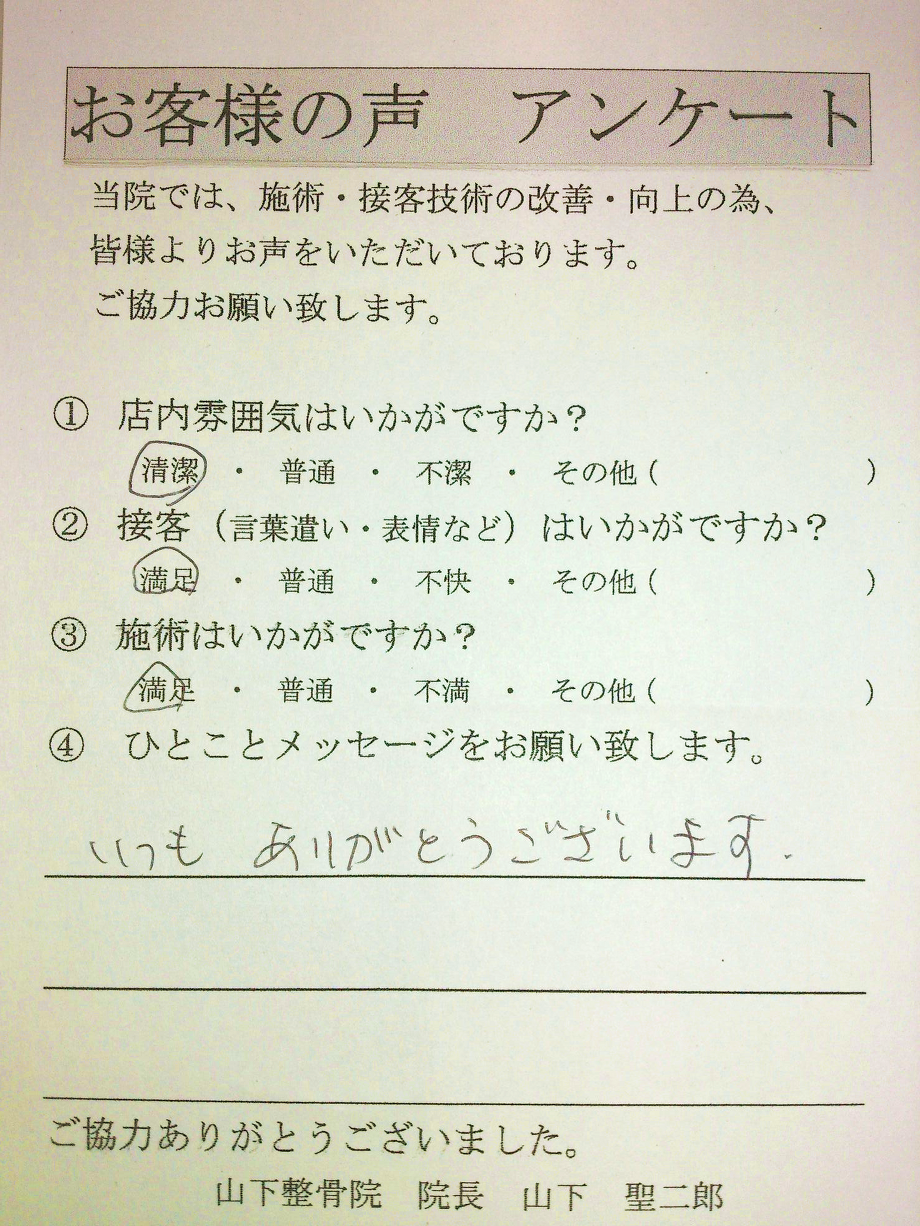 お客様の声　アンケート
当院では、施術・接客技術の改善・向上の為、
皆様よりお声をいただいております。
ご協力お願い致します。
① 店内雰囲気はいかがですか？
清潔 ・ 普通 ・ 不潔 ・ その他（　　　　　　　）
② 接客（言葉遣い・表情など）はいかがですか？
満足 ・ 普通 ・ 不快 ・ その他（　　　　　　　）
③ 施術はいかがですか？
満足 ・ 普通 ・ 不満 ・ その他（　　　　　　　）
④ ひとことメッセージをお願い致します。
いつも ありがとうございます.
ご協力ありがとうございました。
山下整骨院　院長　山下　聖二郎